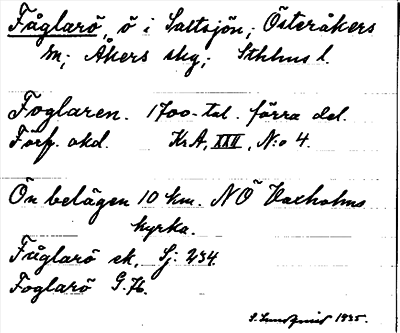 Fåglarö, ö i Saltsjön, Österåkers
sn; Åkers skg; Sthlms l.
Foglaren. 1700-tal. förra del.
Förf. okd. Kr A, XXII, N:o 4.
Ön belägen 10 km. NÖ Vaxholms
kyrka.
Fåglarö sk. Sj: 234.
Foglarö G.K.
S. Lundqvist 1935.